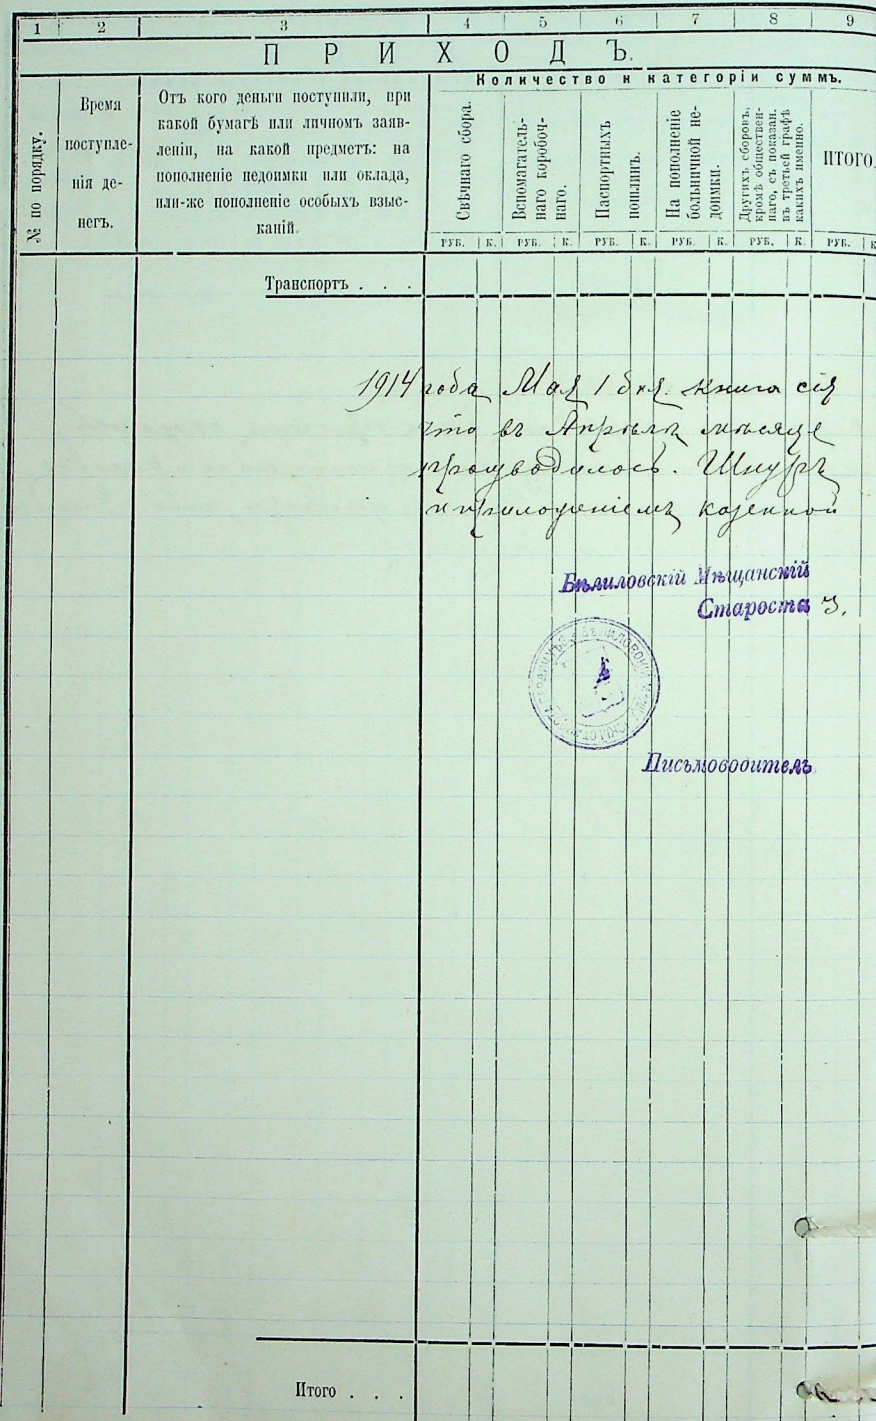 1 2 3 4 5 6 7 8 9
ПРИХОДЪ.
Количество и категоріи суммъ.
№ по порядку.
Время
поступле-
нія де-
негъ.
Отъ кого деньги поступили, при
какой бумагѣ или личномъ заяв-
леніи, на какой предметъ: на
пополненіе недоимки или оклада,
или-же пополненіе особыхъ взыс-
каній.
Свѣчнаго сбора.
Вспомагатель-
наго коробоч-
наго.
Паспортныхъ
пошлинъ.
На пополненіе
больничной не-
доимки.
Другихъ сборовъ,
кромѣ обществен-
наго, съ показан.
въ третьей графѣ
какихъ именно.
ИТОГО.
РУБ. К. РУБ. К. РУБ. К. РУБ. К. РУБ. К. РУБ. К
Транспортъ . . .
1914 года Мая 1 дня книга сія
что въ Апрѣлѣ мѣсяце
производилось. Шнуръ
приложеніемъ казенной
Бѣлиловскій Мѣщанскій
Староста З.
Письмоводитель
Итого . . .